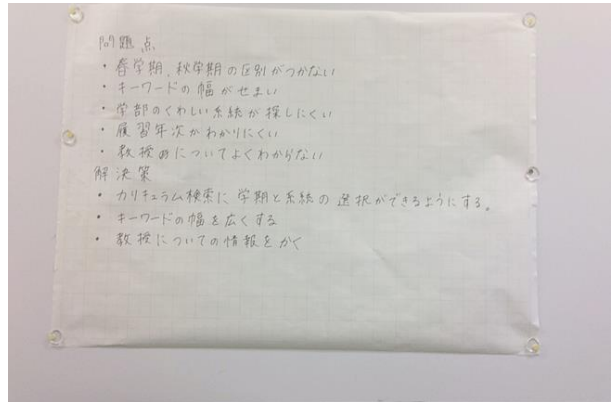 問題点
・春学期、秋学期の区別がつかない
・キーワードの幅がせまい
・学部のくわしい系統が探しにくい
・履習年次がわかりにくい
・教授についてよくわからない
解決策
・カリキュラム検索に学期と系統の選択ができるようにする。
・キーワードの幅を広くする
・教授についての情報をかく